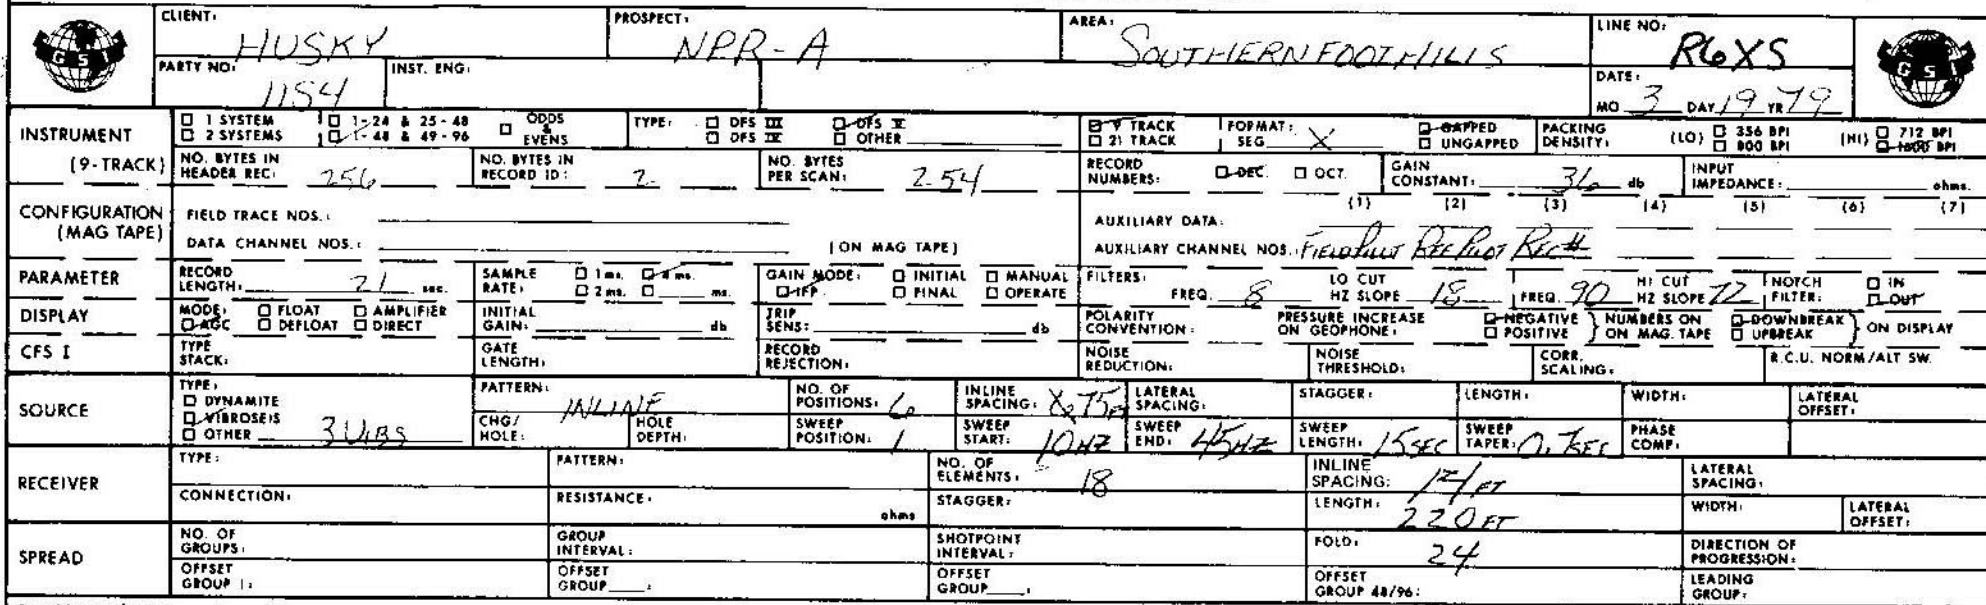 CLIENT: HUSKY PROSPECT: NPR-A AREA: SOUTHERN FOOTHILLS LINE NO: R6XS
GSI GSI
PARTY NO: 1154 INST. ENG: DATE: MO 3 DAY 19 YR 79
INSTRUMENT (9-TRACK)
1 SYSTEM 1-24 & 25-48 ODDS & EVENS TYPE: DFS III DFS V 9 TRACK FORMAT: SEG X GAPPED PACKING DENSITY: (LO) 356 BPI (HI) 712 BPI
2 SYSTEMS 1-48 & 49-96 DFS IV OTHER 21 TRACK UNGAPPED 800 BPI 1600 BPI
NO. BYTES IN HEADER REC: 256 NO. BYTES IN RECORD ID: 2 NO. BYTES PER SCAN: 254 RECORD NUMBERS: DEC. OCT. GAIN CONSTANT: 36 db INPUT IMPEDANCE: ohms.
CONFIGURATION (MAG TAPE)
FIELD TRACE NOS.: AUXILIARY DATA: (1) (2) (3) (4) (5) (6) (7)
DATA CHANNEL NOS.: (ON MAG TAPE) AUXILIARY CHANNEL NOS. FIELD PILOT REC PILOT REC#
PARAMETER RECORD LENGTH: 21 sec. SAMPLE RATE: 1 ms. 4 ms. 2 ms. ms. GAIN MODE: INITIAL MANUAL IFP FINAL OPERATE FILTERS: FREQ. 8 LO CUT HZ SLOPE 18 FREQ. 90 HI CUT HZ SLOPE 72 NOTCH FILTER: IN OUT
DISPLAY MODE: FLOAT AMPLIFIER AGC DEFLOAT DIRECT INITIAL GAIN: db TRIP SENS: db POLARITY CONVENTION: PRESSURE INCREASE ON GEOPHONE: NEGATIVE POSITIVE NUMBERS ON ON MAG. TAPE DOWNBREAK UPBREAK ON DISPLAY
CFS I TYPE STACK: GATE LENGTH: RECORD REJECTION: NOISE REDUCTION: NOISE THRESHOLD: CORR. SCALING: R.C.U. NORM/ALT SW.
SOURCE TYPE: DYNAMITE VIBROSEIS OTHER 3 VIBS PATTERN: INLINE NO. OF POSITIONS: 6 INLINE SPACING: 75 LATERAL SPACING: STAGGER: LENGTH: WIDTH: LATERAL OFFSET:
CHG/HOLE: HOLE DEPTH: SWEEP POSITION: 1 SWEEP START: 10HZ SWEEP END: 45HZ SWEEP LENGTH: 15SEC SWEEP TAPER: 0.7SEC PHASE COMP:
RECEIVER TYPE: PATTERN: NO. OF ELEMENTS: 18 INLINE SPACING: FT LATERAL SPACING:
CONNECTION: RESISTANCE: ohms STAGGER: LENGTH: 220 FT WIDTH: LATERAL OFFSET:
SPREAD NO. OF GROUPS: GROUP INTERVAL: SHOTPOINT INTERVAL: FOLD: 24 DIRECTION OF PROGRESSION:
OFFSET GROUP 1: OFFSET GROUP: OFFSET GROUP: OFFSET GROUP 48/96: LEADING GROUP: